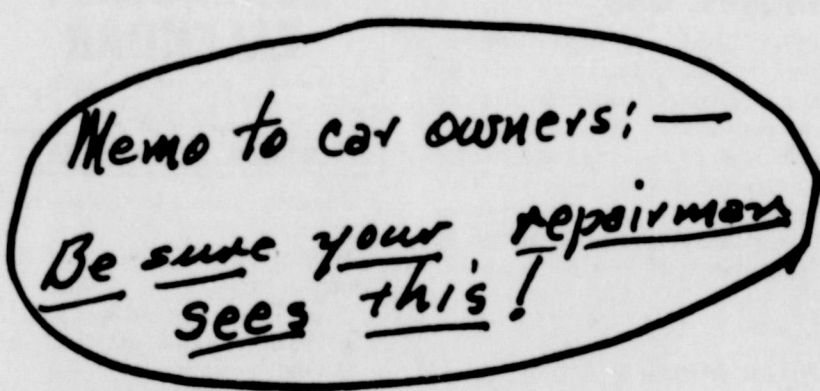 Memo to car owners: —
Be sure your repairman
sees this!